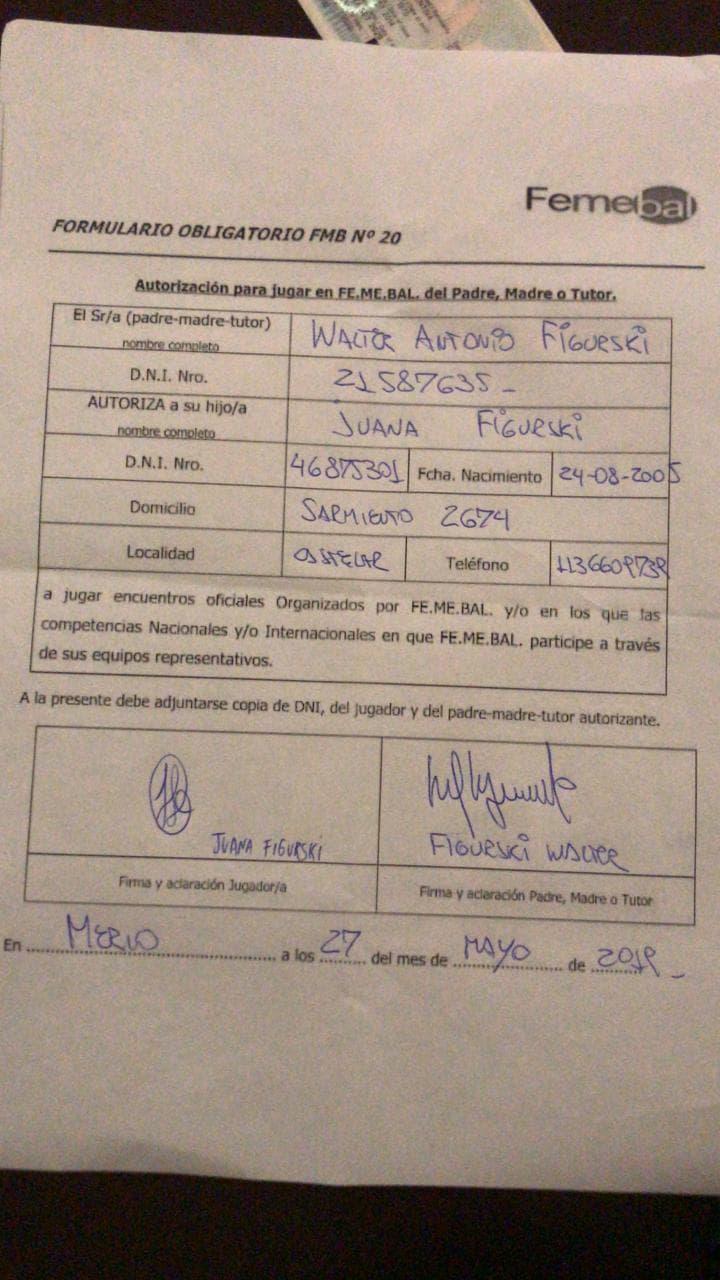 Femebal
FORMULARIO OBLIGATORIO FMB Nº 20
Autorización para jugar en FE.ME.BAL. del Padre, Madre o Tutor.
El Sr/a (padre-madre-tutor)
nombre completo
WALTER ANTONIO FIGURSKI
D.N.I. Nro.
21587635
AUTORIZA a su hijo/a
nombre completo
JUANA FIGURSKI
D.N.I. Nro.
46875301
Fcha. Nacimiento
24-08-2005
Domicilio
SARMIENTO 2674
Localidad
Teléfono
1136609739
a jugar encuentros oficiales Organizados por FE.ME.BAL. y/o en los que las
competencias Nacionales y/o Internacionales en que FE.ME.BAL. participe a través
de sus equipos representativos.
A la presente debe adjuntarse copia de DNI, del jugador y del padre-madre-tutor autorizante.
JUANA FIGURSKI
FIGURSKI WALTER
Firma y aclaración Jugador/a
Firma y aclaración Padre, Madre o Tutor
En MERLO a los 27 del mes de MAYO de 2019